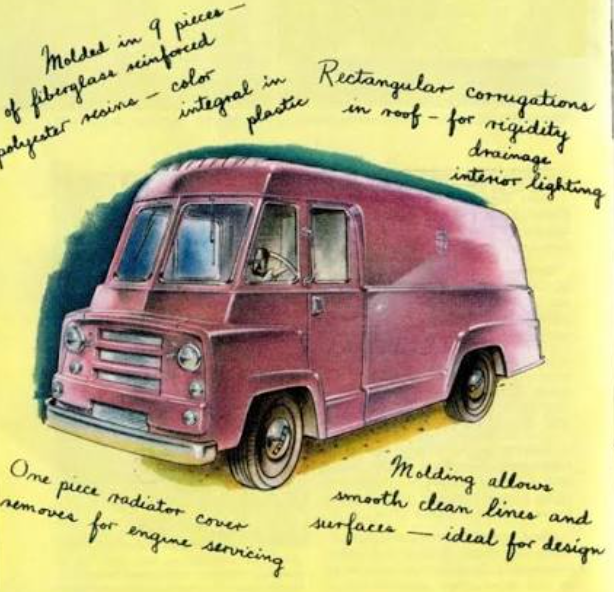 Molded in 9 pieces —
of fiberglass reinforced
polyester resins — color
integral in
plastic
Rectangular corrugations
in roof — for rigidity
drainage
interior lighting
One piece radiator cover
removes for engine servicing
Molding allows
smooth clean lines and
surfaces — ideal for design